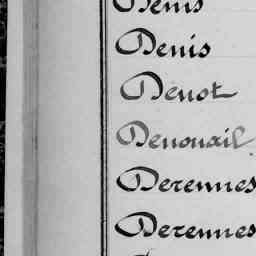 Denis
Denis
Denot
Denouail
Derennes
Derennes